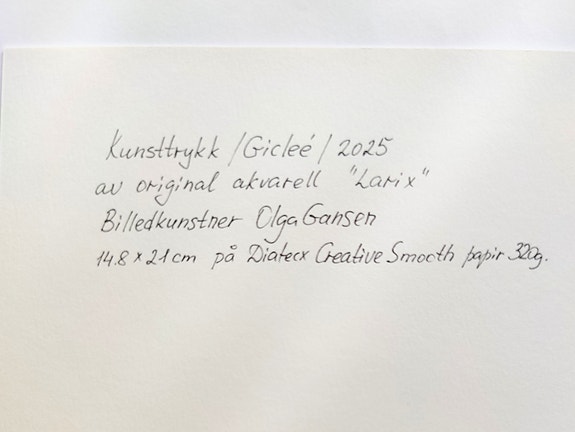 Kunsttrykk /Gicleé/ 2025
av original akvarell "Larix"
Billedkunstner Olga Gansen
14.8 x 21 cm på Diatecx Creative Smooth papir 320g.